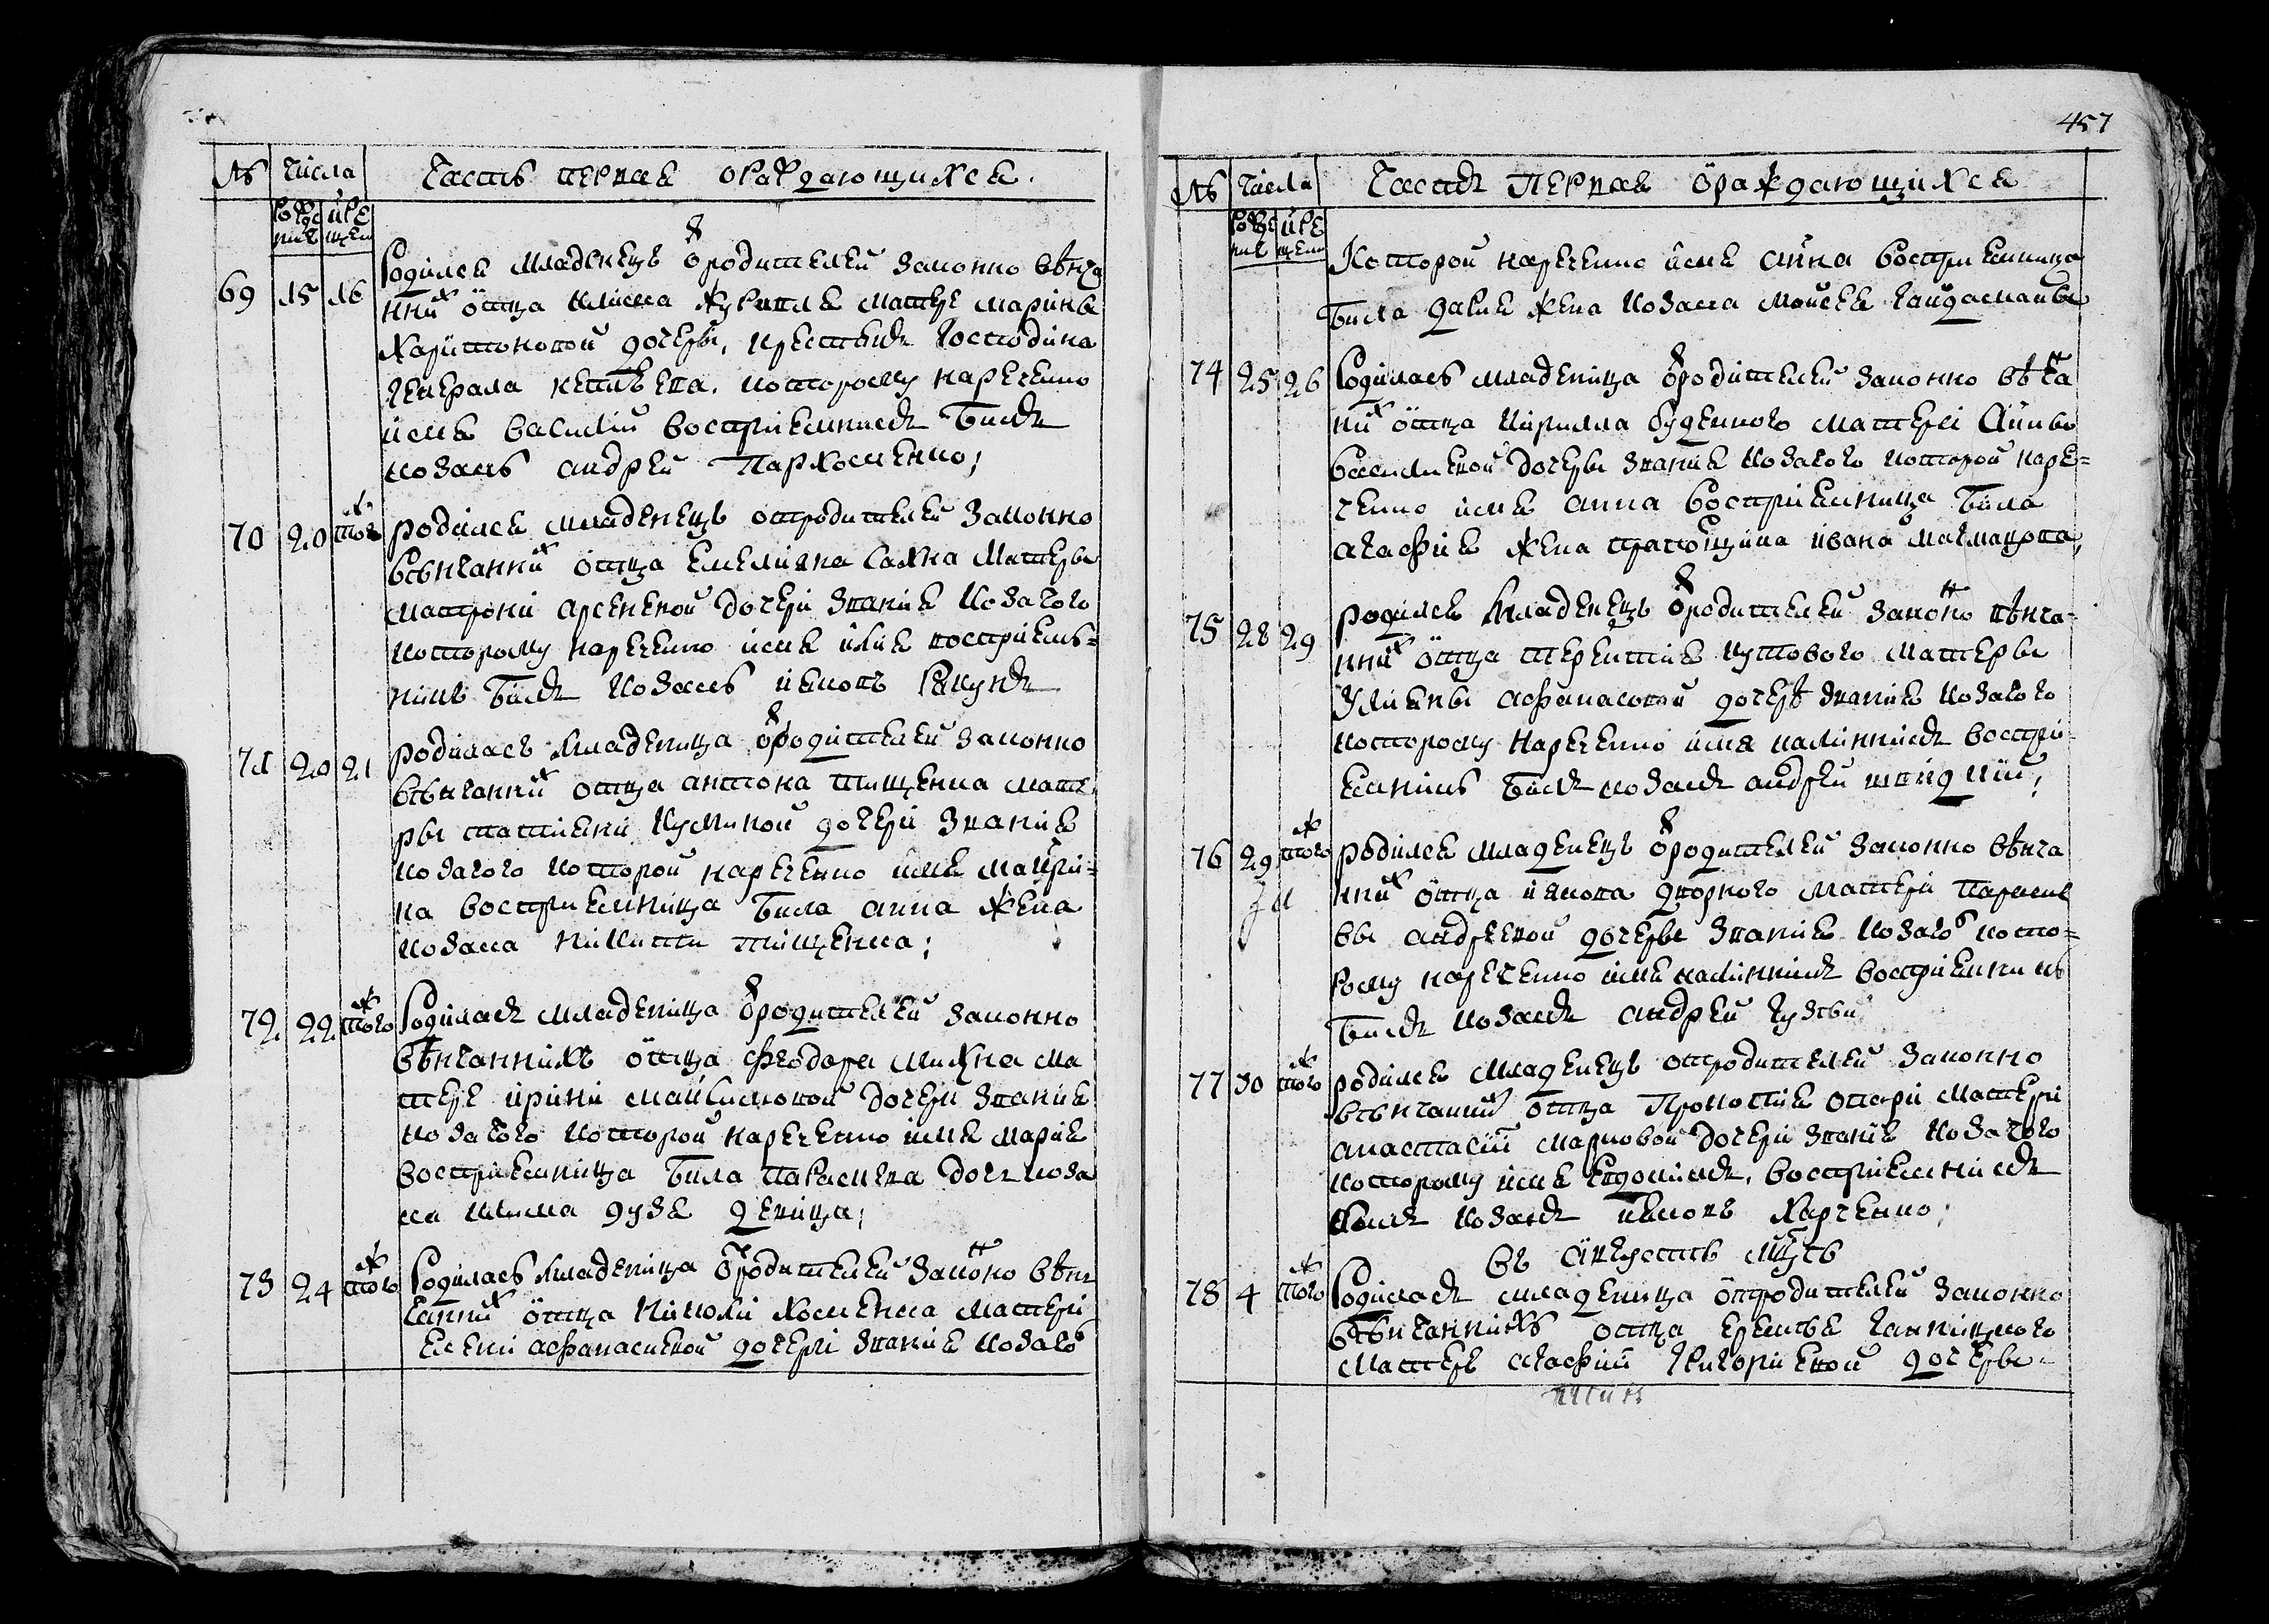 № Числа Часть первая о раждающихся.
рожде крe
ния щени
69 15 16 Родился младенецъ ѿ родителей законно вѣнча
нних отца Клима матере Марины
Харитоновой дочеры, крестьянъ господина
генерала которому наречено
имя Василий восприемникъ билъ
козакъ Андрей Пархоменко;
70 20 того ж родился младенецъ от родителей законно
вѣнчанних отца Емелияна Сахна матеры
Матрони Арсеневой дочери звания козачого
которому наречено имя Илия восприем-
никъ билъ козакъ Яковъ
71 20 21 родилась младеница ѿ родителей законно
вѣнчанних отца Антона Тищенка мате
ры Татияни Кузминой дочери звания
козачого которой наречено имя Маври-
на восприемница била Анна жена
козака Никити Тищенка;
72 22 того ж Родилась младеница ѿ родителей законно
вѣнчаннихъ отца Феодора Михна ма
тере Ирини Максимовой дочери звания
козачого которой наречено имя Мария
восприемница била Параскева дочь коза
ка Клима девица;
73 24 того ж Родилась младеница ѿ родителей законно вѣн
чанних отца Николи Хоменка матери
Елени Афанасиевой дочери звания козачо
457
№ Числа Часть первая о раждающихся
рожде крe
ния щени
Которой наречено имя Анна восприемница
била Дария жена козака Мойсея
74 25 26 Родилась младеница ѿ родителей законно вѣнча
них отца Кирилла Буденного матери Анны
Василиевой дочеры звания козачого которой наре-
чено имя Анна восприемница била
Агафия жена прапощика Ивана
75 28 29 родился младенецъ ѿ родителей законно вѣнча-
нних отца Терентия Кутового матеры
Улияны Афанасовой дочерѣ звания козачого
которому наречено имя Калинникъ воспри-
емникъ билъ козакъ Андрей
76 29 того ж родился младенецъ ѿ родителей законно вѣнча
нних отца Якова Дворного матери Параске
вы Андреевой дочеры звания козачого кото-
рому наречено имя Калинникъ восприемникъ
билъ козакъ Андрей
77 30 того ж родился младенецъ от родителей законно
вѣнчанних отца Прокопия матери
Анастасии Марковой дочери звания козачого
которому имя Евдокимъ, восприемникъ
билъ козакъ Яковъ Харченко;
въ Августѣ мцѣ
78 4 того ж Родилась младеница от родителей законно
вѣнчаннихъ отца Еремѣя
матерѣ Агафии Григориевой дочеры-